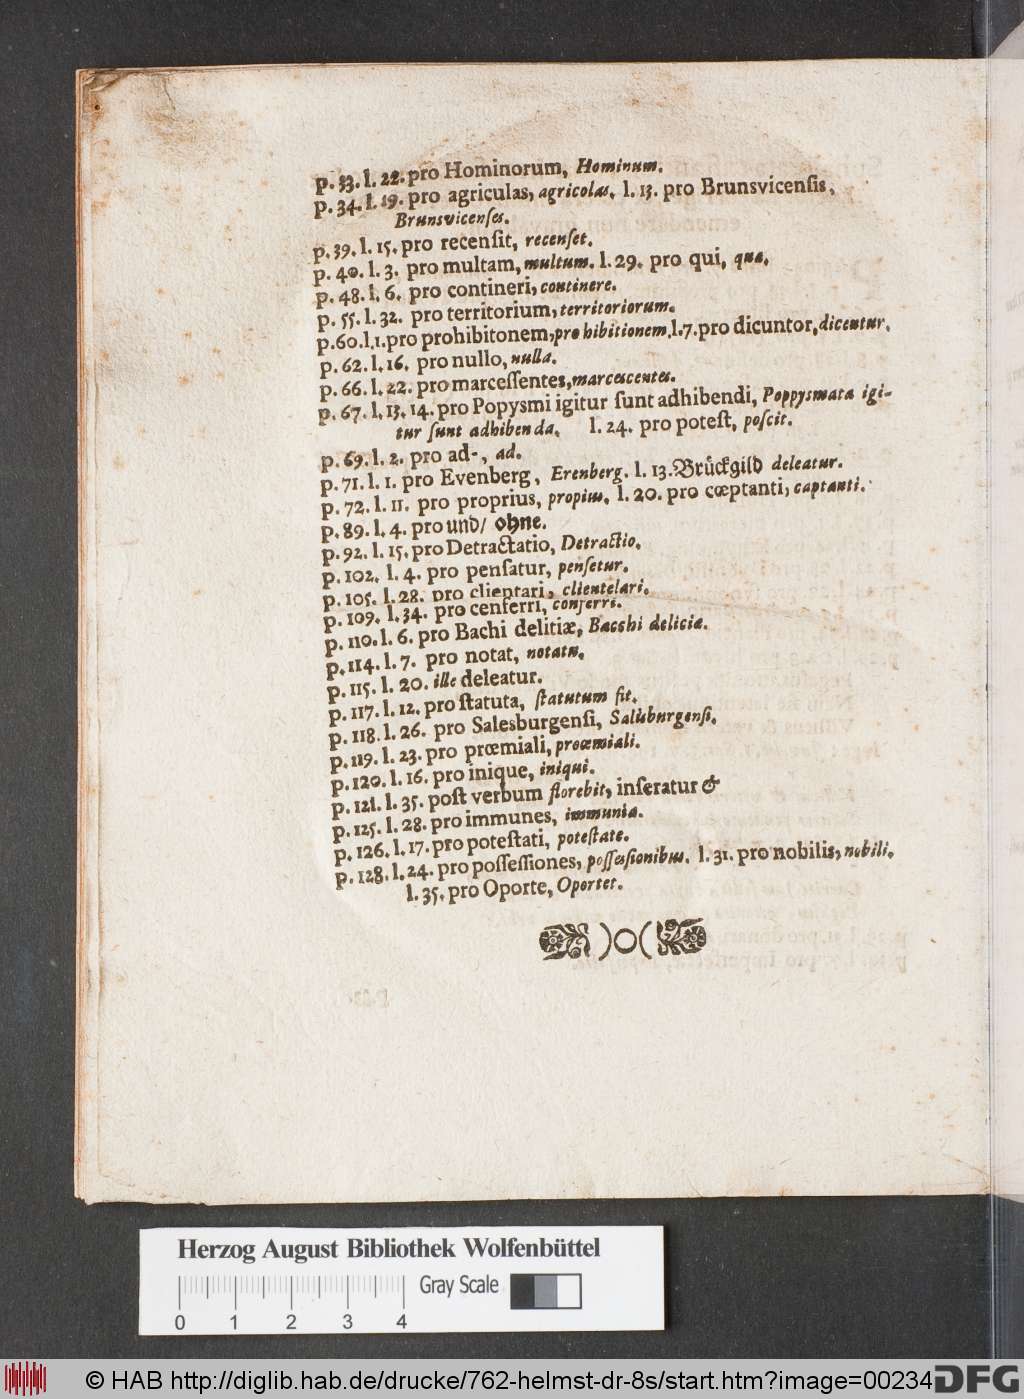 p. 33. l. 22. pro Hominorum, Hominum.
p. 34. l. 19. pro agriculas, agricolas. l. 13. pro Brunsvicensis,
Brunsvicenses.
p. 39. l. 15. pro recensit, recenset.
p. 40. l. 3. pro multam, multum. l. 29. pro qui, qua.
p. 48. l. 6. pro contineri, continere.
p. 55. l. 32. pro territorium, territoriorum.
p. 60. l. 1. pro prohibitonem, prohibitionem. l. 7. pro dicuntor, dicentur.
p. 62. l. 16. pro nullo, nulla.
p. 66. l. 22. pro marcessentes, marcescentes.
p. 67. l. 13. 14. pro Popysmi igitur sunt adhibendi, Poppysmata igi-
tur sunt adhibenda. l. 24. pro potest, poscit.
p. 69. l. 2. pro ad-, ad.
p. 71. l. 1. pro Evenberg, Erenberg. l. 13. Brückgild deleatur.
p. 72. l. 11. pro proprius, propius. l. 20. pro cœptanti, captanti.
p. 89. l. 4. pro und/ ohne.
p. 92. l. 15. pro Detractatio, Detractio.
p. 102. l. 4. pro pensatur, pensetur.
p. 105. l. 28. pro clientari, clientelari.
p. 109. l. 34. pro cenferri, conferri.
p. 110. l. 6. pro Bachi delitiæ, Bacchi deliciæ.
p. 114. l. 7. pro notat, notatu.
p. 115. l. 20. ille deleatur.
p. 117. l. 12. pro statuta, statutum sit.
p. 118. l. 26. pro Salesburgensi, Salisburgensi.
p. 119. l. 23. pro prœmiali, proœmiali.
p. 120. l. 16. pro inique, iniqui.
p. 121. l. 35. post verbum florebit, inseratur &
p. 125. l. 28. pro immunes, immunia.
p. 126. l. 17. pro potestati, potestate.
p. 128. l. 24. pro possessiones, possessionibus. l. 31. pro nobilis, nobili.
l. 35. pro Oporte, Oportet.
)O(
Herzog August Bibliothek Wolfenbüttel
Gray Scale
0 1 2 3 4
© HAB http://diglib.hab.de/drucke/762-helmst-dr-8s/start.htm?image=00234
DFG